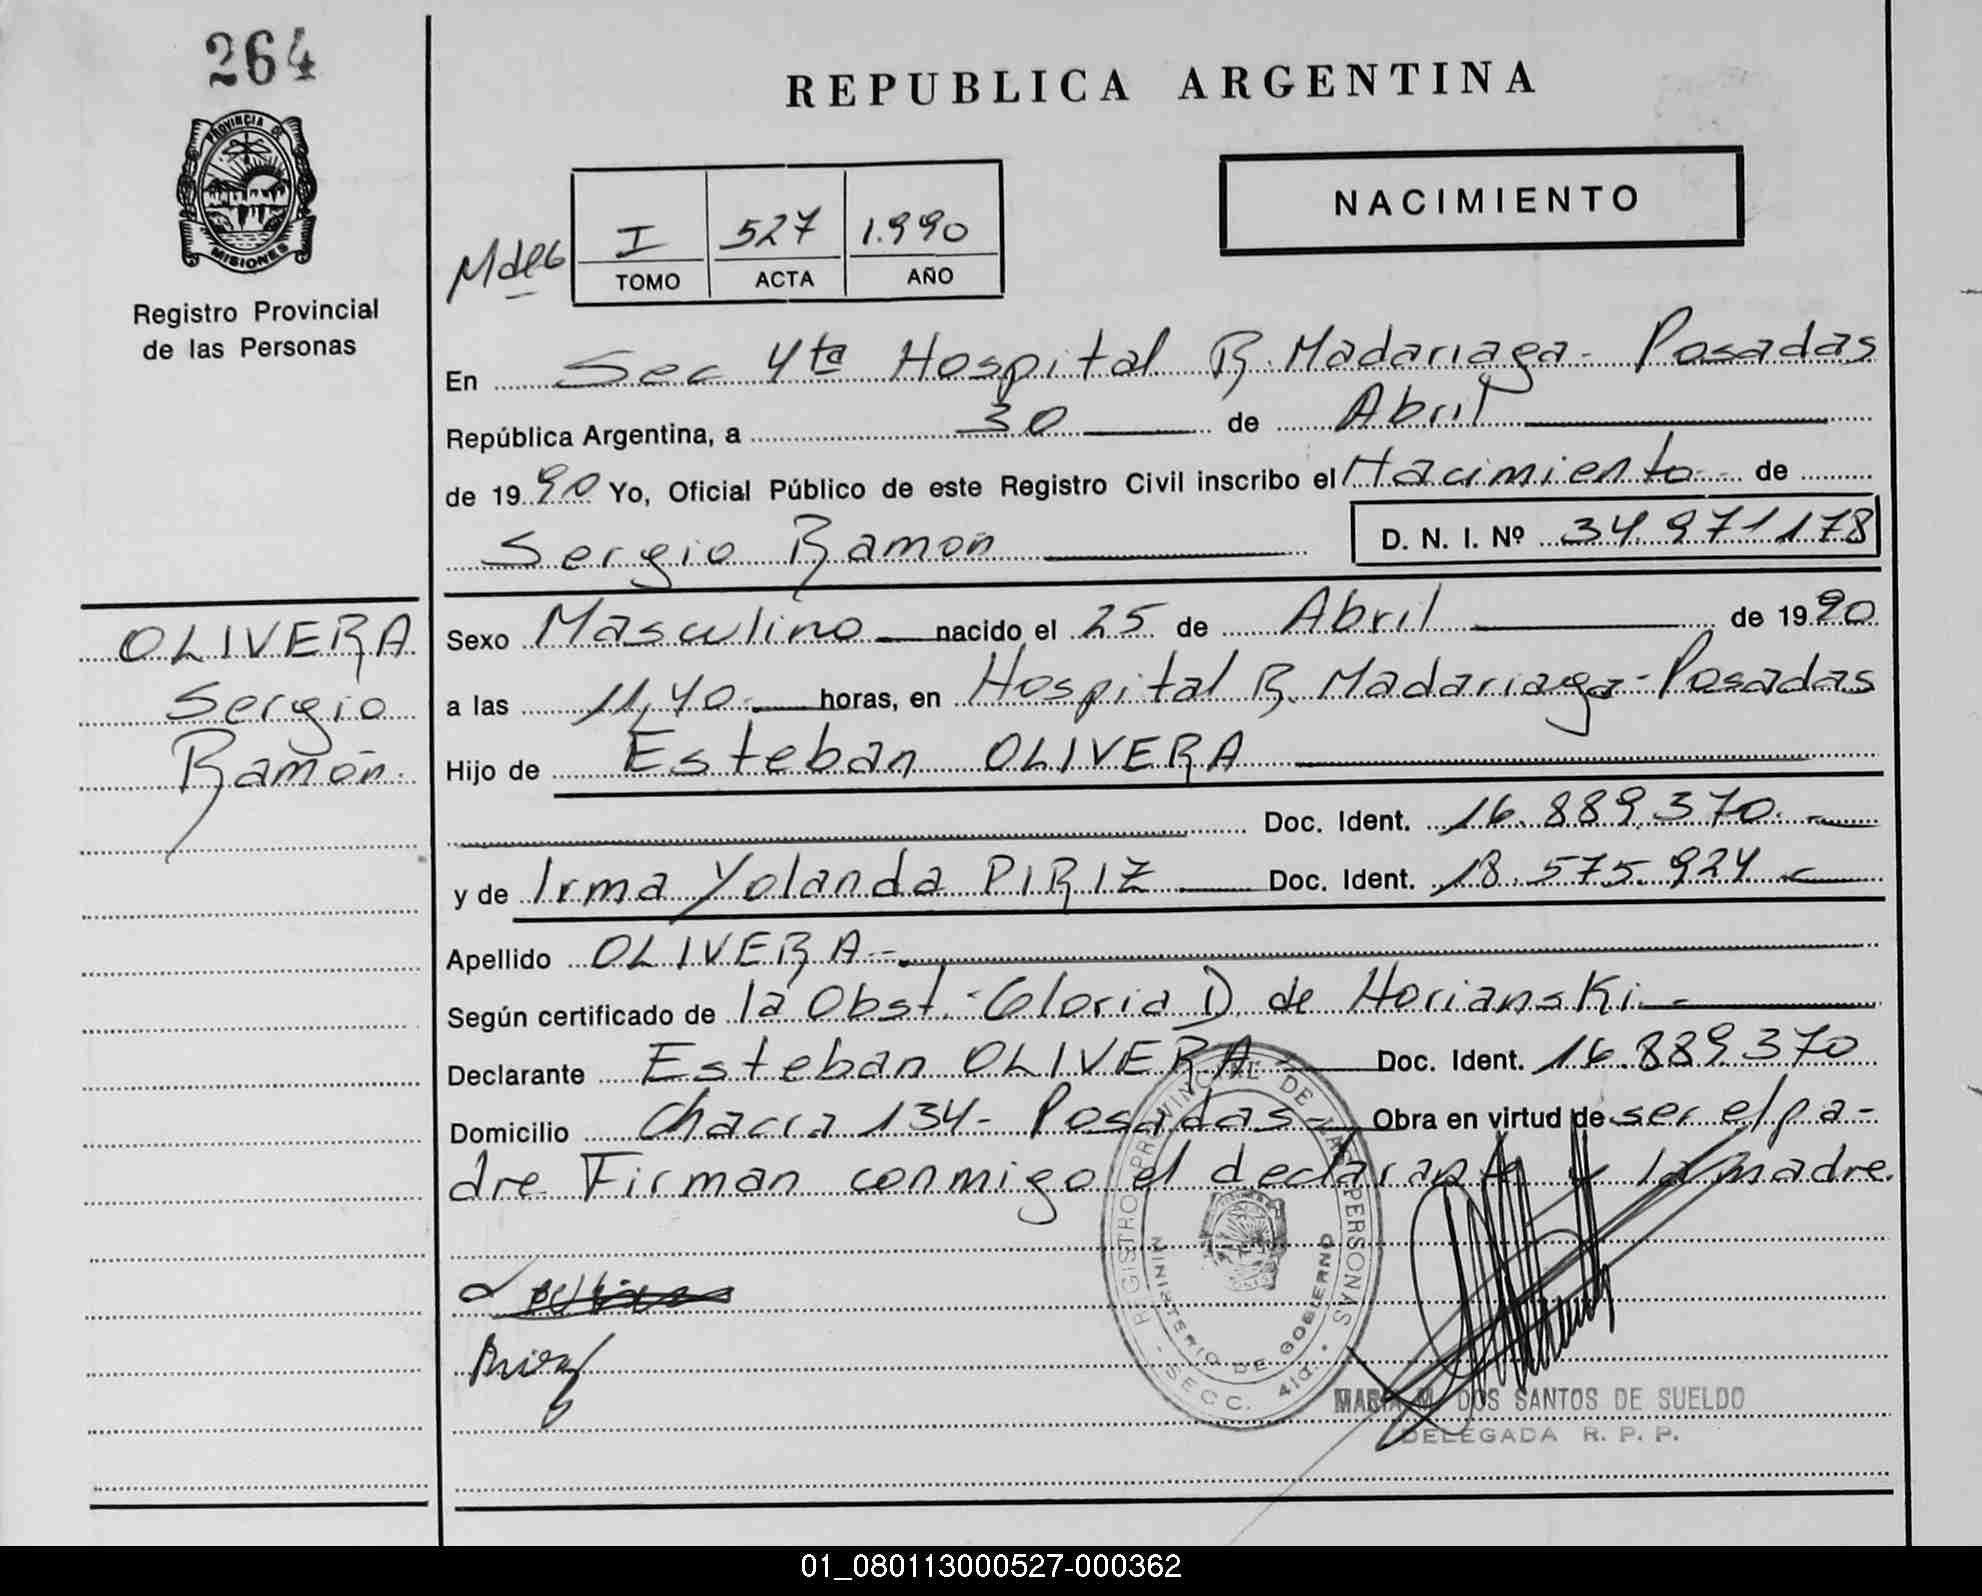 264
REPUBLICA ARGENTINA
PROVINCIA DE
MISIONES
Registro Provincial
de las Personas
NACIMIENTO
I 527 1.990
TOMO ACTA AÑO
En Sec 4ta Hospital R. Madariaga - Posadas
República Argentina, a 30 de Abril
de 1990 Yo, Oficial Público de este Registro Civil inscribo el Nacimiento de
Sergio Ramón
D. N. I. Nº 34.971.178
OLIVERA
Sergio
Ramón.
Sexo Masculino nacido el 25 de Abril de 1990
a las 11,40 horas, en Hospital R. Madariaga - Posadas
Hijo de Esteban OLIVERA
Doc. Ident. 16.889.370.-
y de Irma Yolanda PIRIZ Doc. Ident. 18.575.924
Apellido OLIVERA.-
Según certificado de la Obst. Gloria D. de Horianski.-
Declarante Esteban OLIVERA Doc. Ident. 16.889.370
Domicilio Chacra 134- Posadas Obra en virtud de ser el pa-
dre. Firman conmigo el declarante y la madre.
REGISTRO PROVINCIAL DE LAS PERSONAS
MINISTERIO DE GOBIERNO
- SECC. 4ta. -
MARIA M. DOS SANTOS DE SUELDO
DELEGADA R. P. P.
01_080113000527-000362